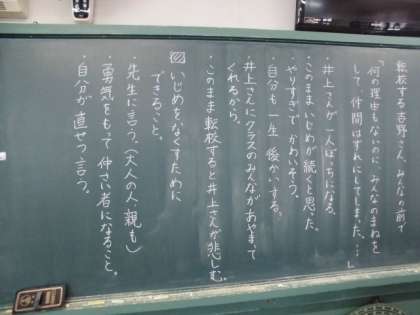 転校する吉野さん、みんなの前で
「何の理由もないのに、みんなのまねを
して、仲間はずれにしてしまった…」
・井上さんが一人ぼっちになる。
・このままいじめが続くと思った。
・やりすぎで かわいそう。
・自分も一生後かいする。
・井上さんにクラスのみんながあやまって
くれるから。
・このまま転校すると井上さんが悲しむ。
いじめをなくすために
できること。
・先生に言う。(大人の人・親も)
・勇気をもって仲さい者になること。
・自分が直せつ言う。